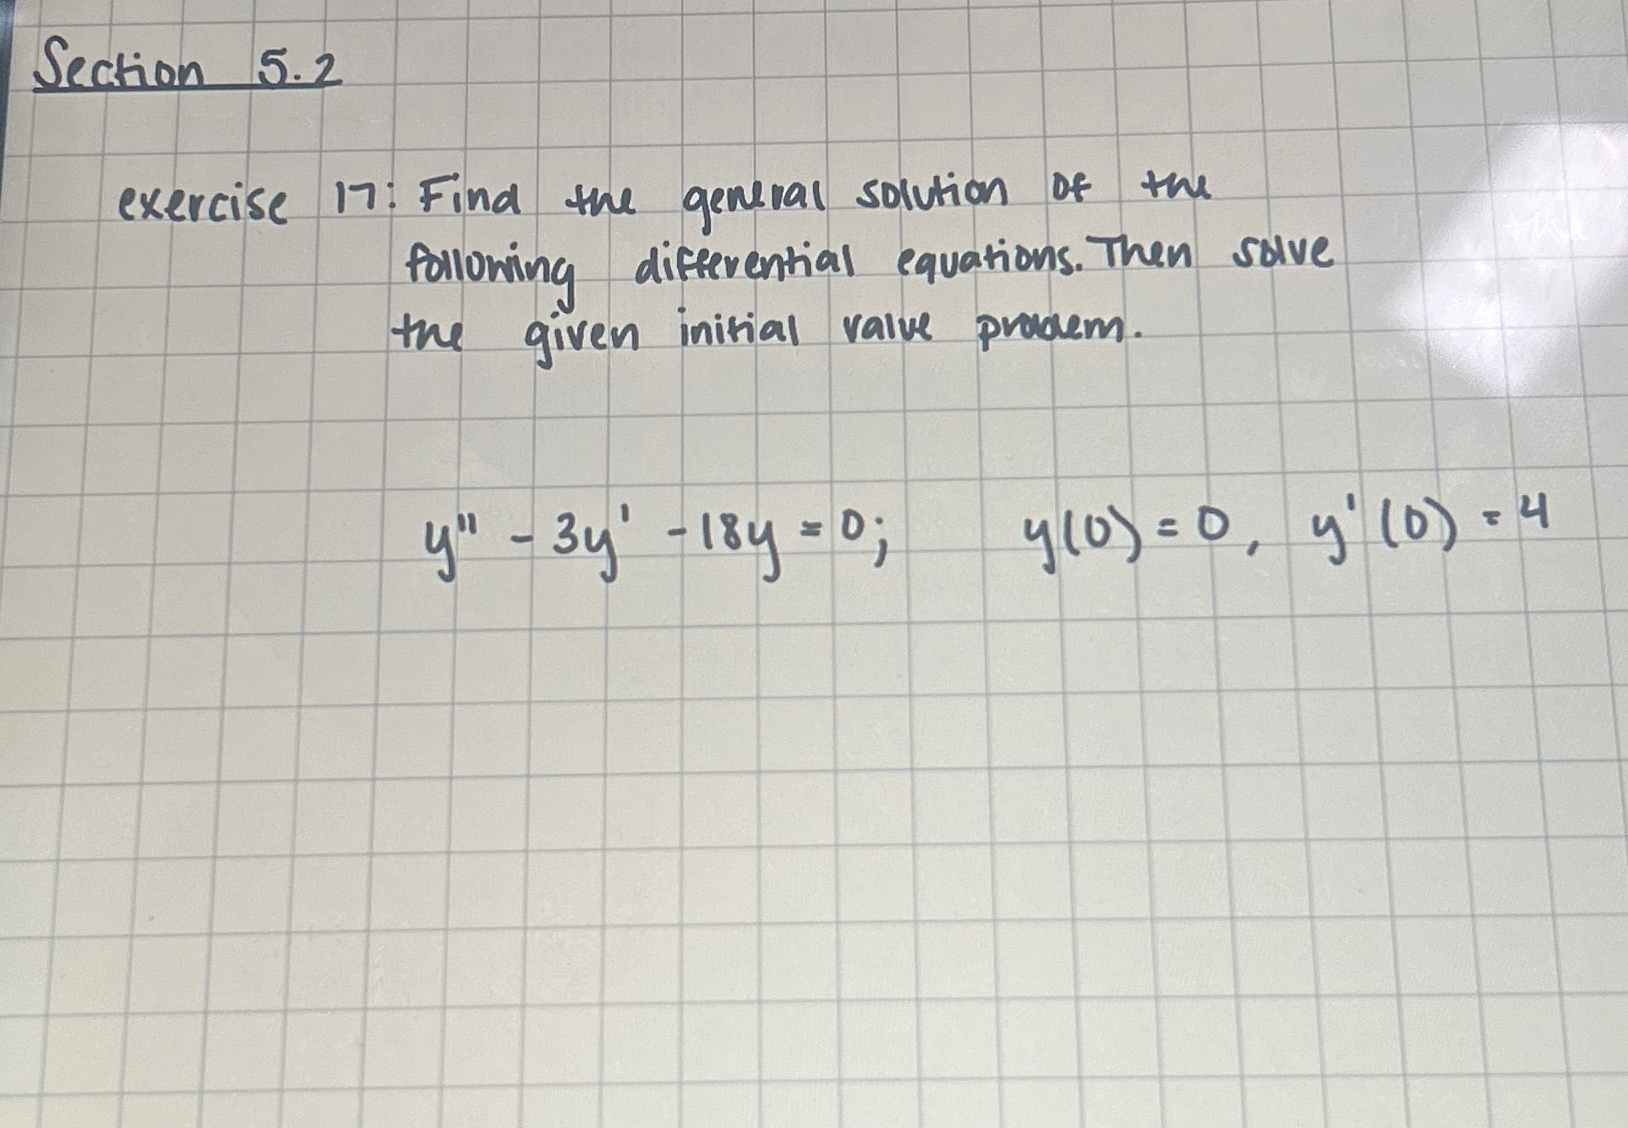 Section 5.2
exercise 17: Find the general solution of the
following differential equations. Then solve
the given initial value problem.
y'' - 3y' - 18y = 0; y(0) = 0, y'(0) = 4